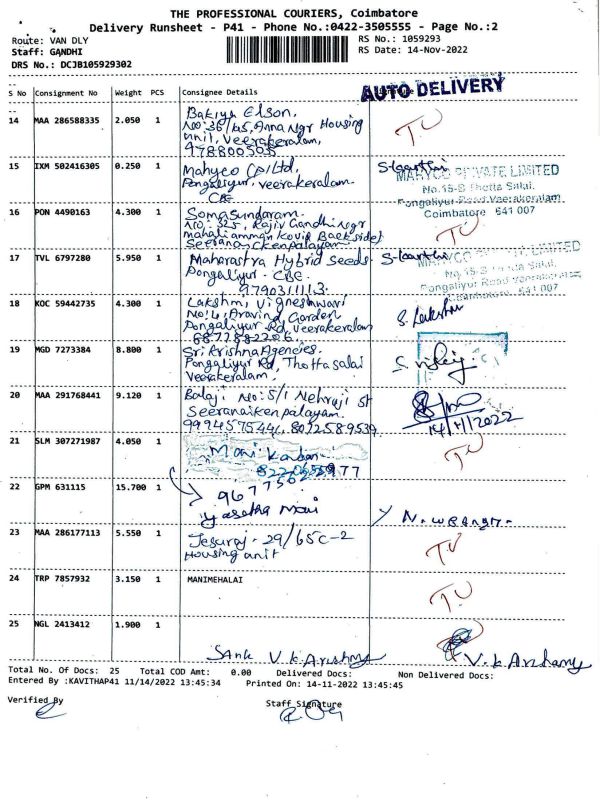 THE PROFESSIONAL COURIERS, Coimbatore
Delivery Runsheet - P41 - Phone No.:0422-3505555 - Page No.:2
Route: VAN DLY
RS No.: 1059293
Staff: GANDHI
RS Date: 14-Nov-2022
DRS No.: DCJB105929302
S No Consignment No Weight PCS Consignee Details
AUTO DELIVERY
14 MAA 286588335 2.050 1 Bakiya Elson,
No:36/65, Anna Ngr Housing
unit, Veerakeralam, T.U
15 IXM 502416305 0.250 1 Mahyco (P) Ltd,
Pongaliyur, veerakeralam.
CBE
MAHYCO PRIVATE LIMITED
No.15-B Thotta Salai,
Pongaliyur Road Veerakeralam,
Coimbatore 641 007
16 PON 4490163 4.300 1 Somasundaram.
No:325, Rajiv Gandhi Ngr
mahaliamman Kovil Backside,
Seeranaickenpalayam T.U
17 TVL 6797280 5.950 1 Maharastra Hybrid Seeds
Pongaliyur - CBE.
9790311113
18 KOC 59442735 4.300 1 Lakshmi, Vigneshwari
No:4, Aravind Garden
Pongaliyur Rd, Veerakeralam
S. Lakshmi
19 MGD 7273384 8.800 1 Sri Krishna Agencies.
Pongaliyur Rd, Thottasalai
Veerakeralam.
20 MAA 291768441 9.120 1 Balaji No:5/1 Nehruji St
Seeranaikenpalayam.
14/11/2022
21 SLM 307271987 4.050 1 T.U
22 GPM 631115 15.700 1
23 MAA 286177113 5.550 1 Jesuraj - 29/65c-2
Housing unit T.U
24 TRP 7857932 3.150 1 MANIMEHALAI T.U
25 NGL 2413412 1.900 1
Total No. Of Docs: 25 Total COD Amt: 0.00 Delivered Docs: Non Delivered Docs:
Entered By :KAVITHAP41 11/14/2022 13:45:34 Printed On: 14-11-2022 13:45:45
Verified By
Staff Signature